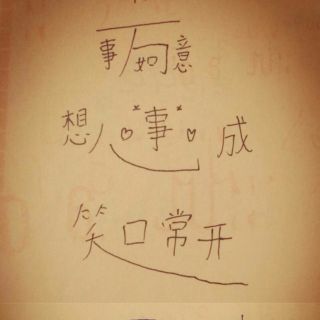 万事如意
心想事成
笑口常开